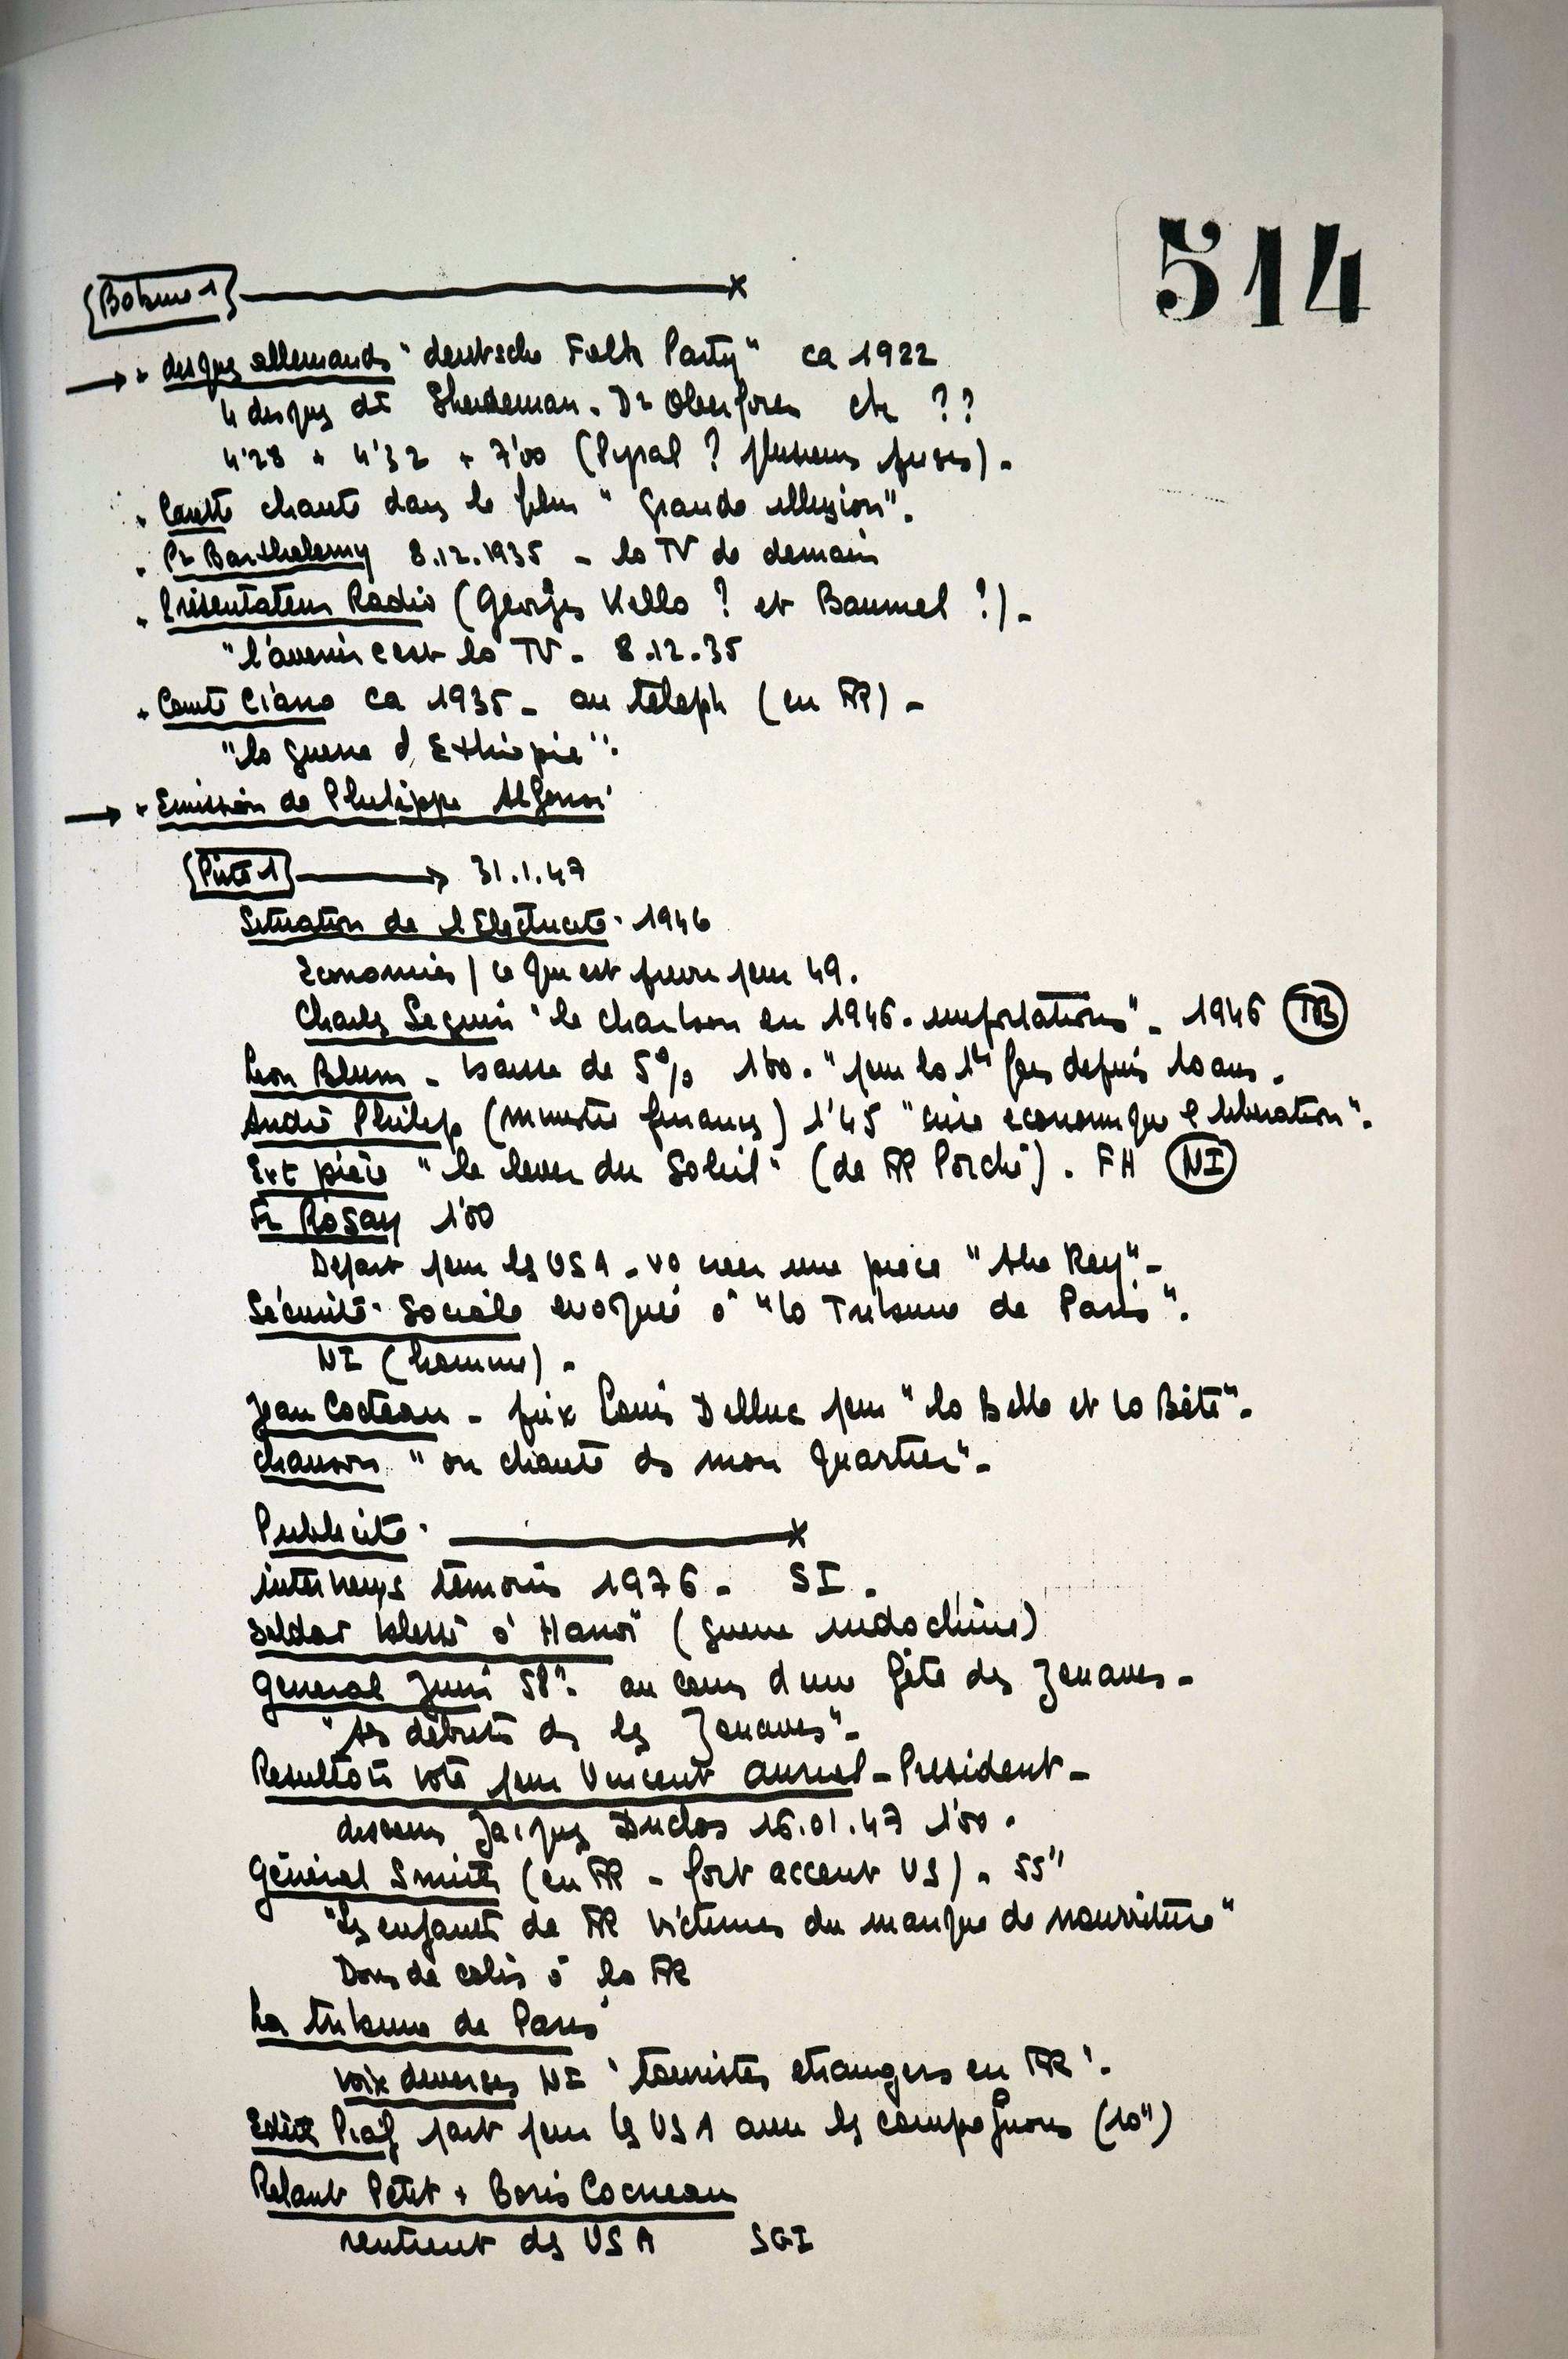 514
Bobine 1
disques allemands "deutsche Folk Party" ca 1922
4 disques dt Sheideman. Dr etc ??
4'28 + 4'32 + 7'00 ( ? plusieurs prises).
chante dans le film "Grande illusion".
Pr Barthelemy 8.12.1935 - la TV de demain
Présentateur Radio (Georges Kello ? et Baumel ?).
"l'avenir c'est la TV - 8.12.35
Comte Ciano ca 1935 - au téleph (en FR) -
"la guerre d'Ethiopie".
Emission de Philippe
Piste 1 → 31.1.47
Situation de l'Electricité. 1946
Economies / ce qui est prevu pour 49.
Charles Seguin "le charbon en 1946. importations". 1946 TB
Leon Blum - baisse de 5% 1'00. "pour la 1ère fois depuis 10 ans.
André Philip (ministre finances) 1'45 "crise economique & liberation".
Ext pièce "le lever du Soleil" (de FR Porché). FH NI
Fr Rosay 1'00
Départ pour les USA - va creer une piece "
Sécurité Sociale evoquée à "la Tribune de Paris".
NI (homme).
Jean Cocteau - prix Louis Delluc pour "la Belle et la Bête".
chanson "on chante ds mon quartier".
Publicité.
interviews témoins 1976 - SI.
Soldat blessé à Hanoï (guerre indochine)
General Juin 58". au cours d'une fête des Zouaves -
"ses débuts ds les Zouaves".
Resultats vote pour Vincent Auriol - President -
discours Jacques Duclos 16.01.47 1'00.
Général Smith (en FR - fort accent US). 55"
"les enfants de FR victimes du manque de nourriture"
Dons de colis à la FR
La tribune de Paris
voix diverses NI "touristes etrangers en FR".
Edith Piaf part pour les USA avec les compagnons (10")
Roland Petit + Boris Cocneau
rentrent des USA SGI